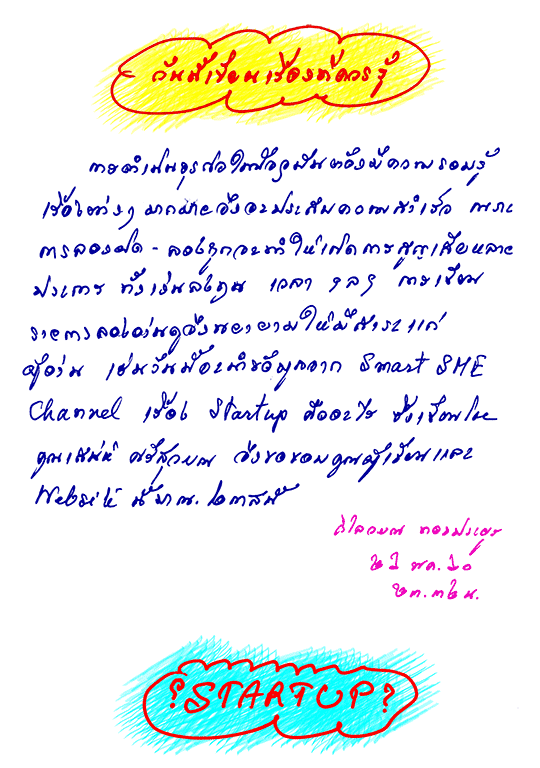 วันนี้เขียนเรื่องที่ควรรู้
การดำเนินธุรกิจในปัจจุบันต้องมีความรอบรู้
เรื่องต่างๆ มากมายจึงจะประสบความสำเร็จ เพราะ
การลองผิด - ลองถูกจะทำให้เกิดการสูญเสียหลาย
ประการ ทั้งเงินลงทุน เวลา ฯลฯ การเขียน
รายการลองอ่านดูจึงพยายามให้มีสาระแก่
ผู้อ่าน เช่นวันนี้จะนำข้อมูลจาก Smart SME
Channel เรื่อง Startup คืออะไร ซึ่งเขียนโดย
คุณเสน่ห์ ศรีสุวรรณ จึงขอขอบคุณผู้เขียนและ
Website นี้มา ณ. โอกาสนี้
ทองประยูร
๒1 พค. ๖๐
๒๓.๓๒ น.
?STARTUP?